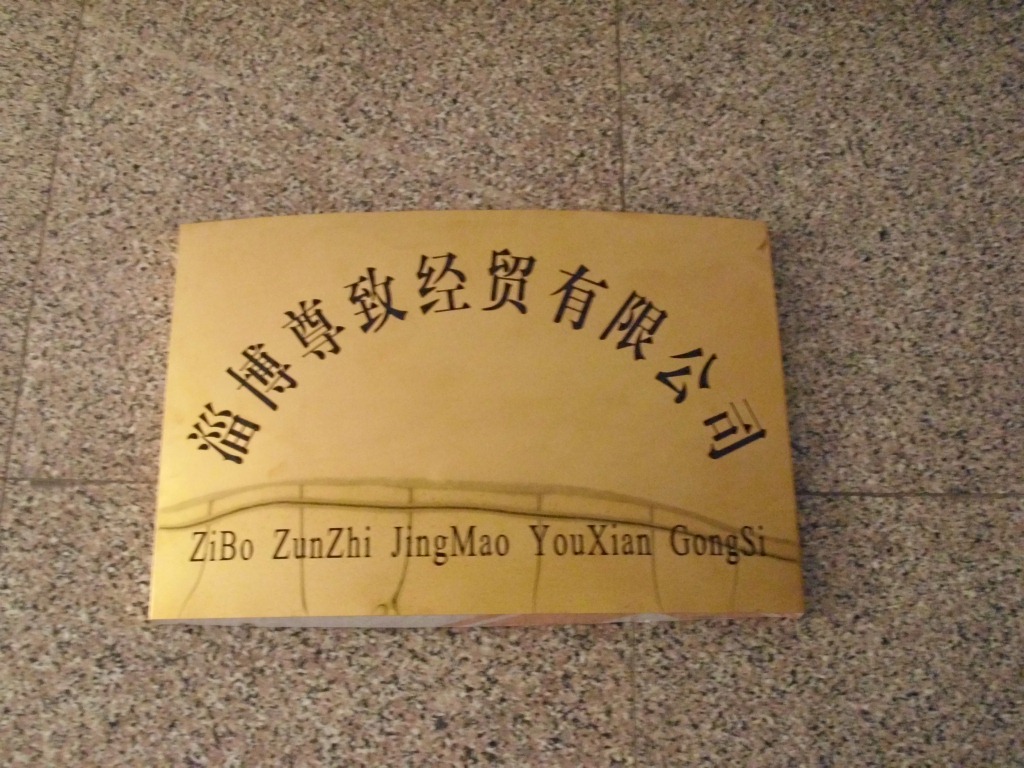 淄博尊致经贸有限公司
ZiBo ZunZhi JingMao YouXian GongSi